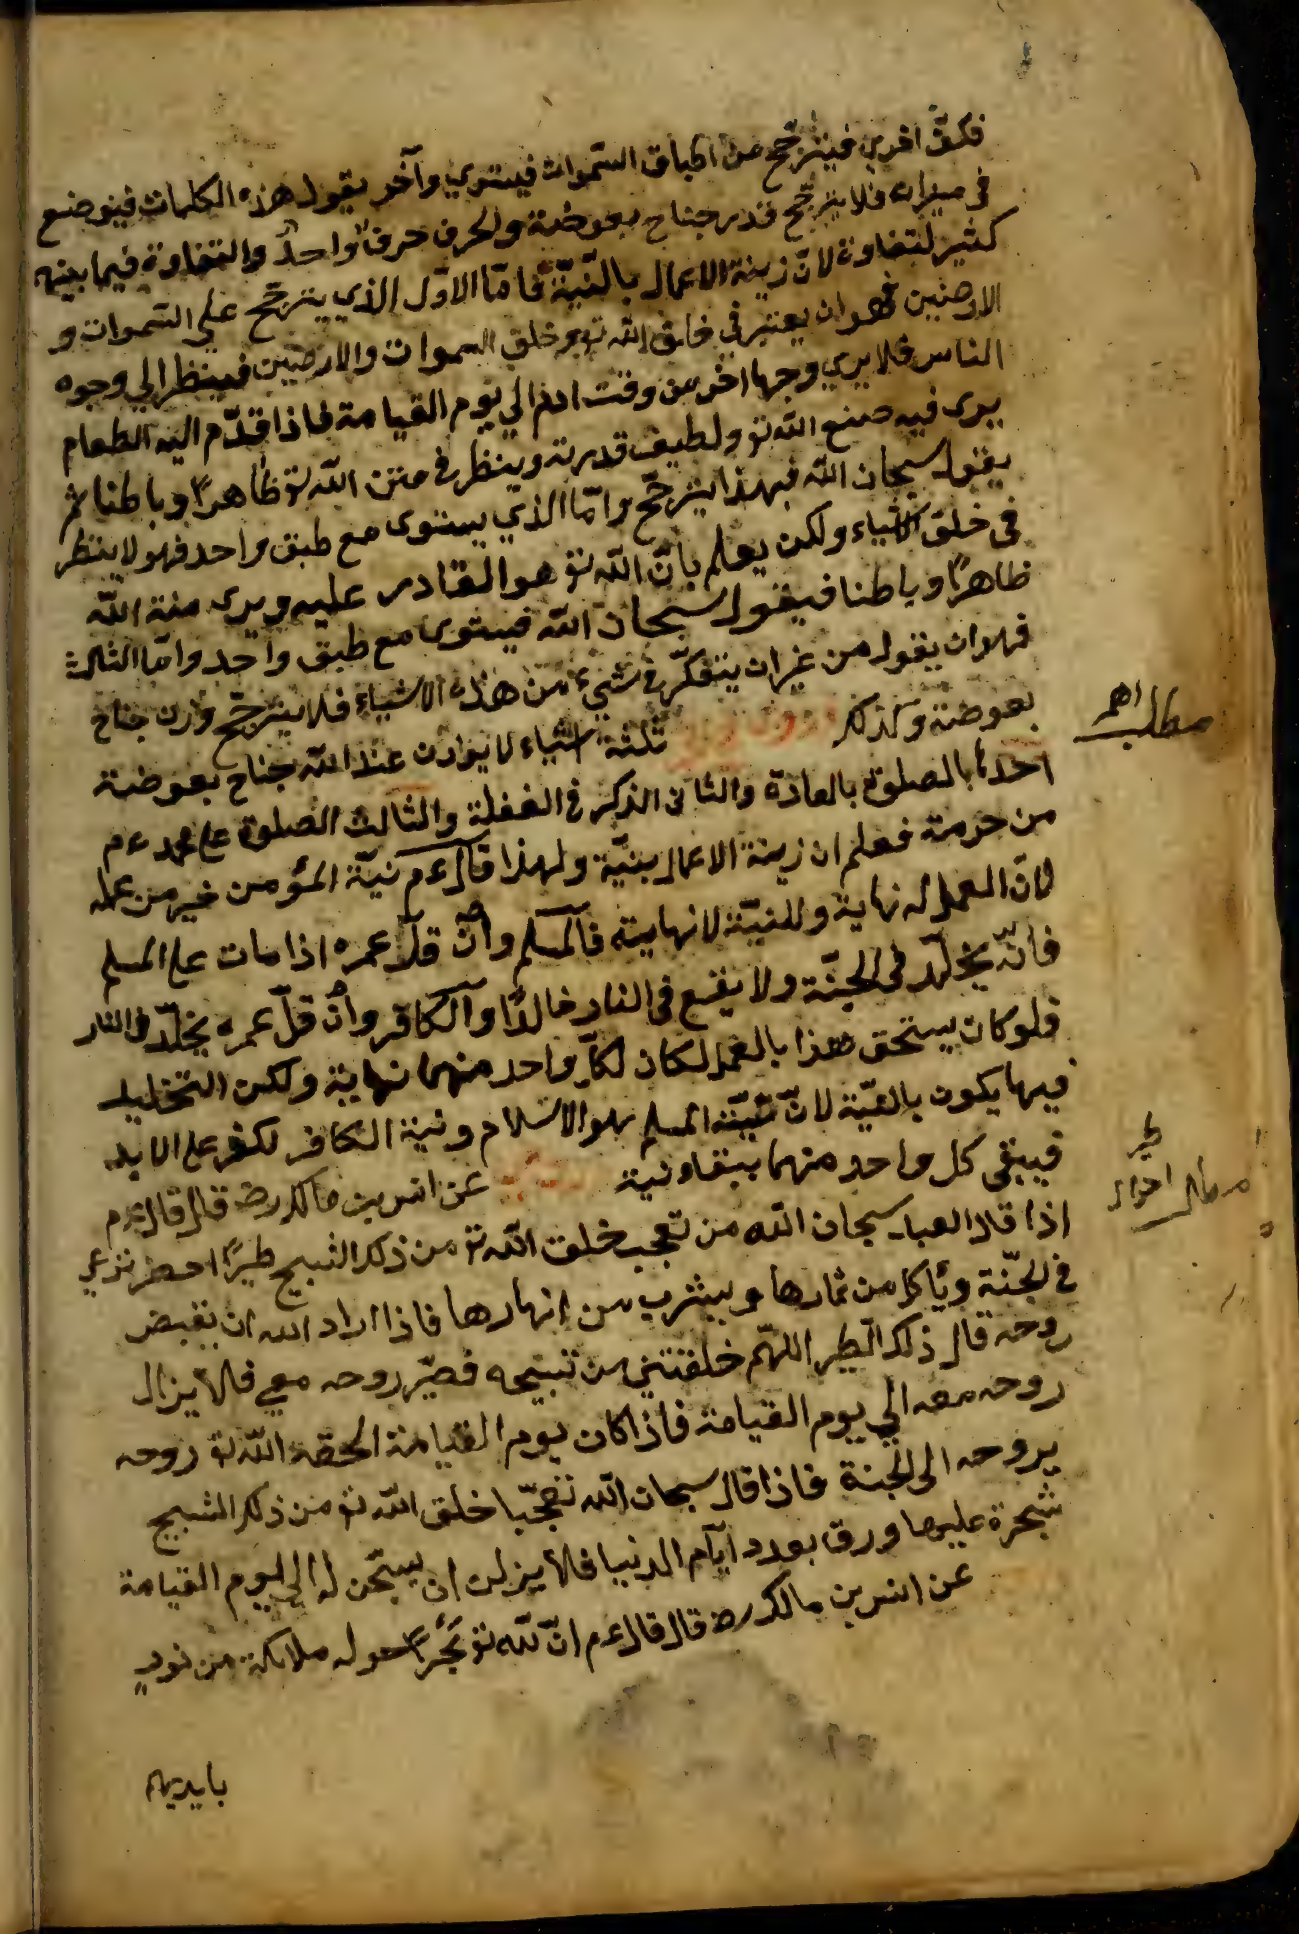 فكفّ اخري فيترجّح من اطباق السّموات فيستوي وآخر يقول هذه الكلمات فيوضع
فى ميزانه فلا يترجّح قدر جناح بعوضة والحرف حرف واحدٌ والتفاوة فيما بينهم
كثير لتفاوة لانّ زينة الاعمال بالنّيّة فامّا الاوّل الذي يترجّح على السّموات و
الارضين فهو ان يعتبر في خلق الله تع خلق السموات والارضين فينظر الي وجوه
الناس فلا يري وجها اخر من وقت ادم الي يوم القيامة فاذا قدّم اليه الطعام
يرى فيه صنع الله تع ولطيف قدرته وينظر في منن الله تع ظاهرًا وباطنا ثم
يقول سبحان الله فبهذا يترجّح وامّا الذي يستوى مع طبق واحد فهو لا ينظر
فى خلق الاشياء ولكن يعلم بانّ الله تع هو القادر عليه ويرى منة الله
ظاهرًا وباطنا فيقول سبحان الله فيستوى مع طبق واحد وامّا الثالث
فهو ان يقول من غير ان يتفكّر في شيء من هذه الاشياء فلا يترجّح وزن جناح
بعوضة وكذلك ثلثة اشياء لا يوازن عند الله جناح بعوضة
احدها بالصلوة بالعادة والثانى الذكر فى الغفلة والثالث الصلوة على محمد عم
من حرمة فعلم ان زينة الاعمال بنيّة ولهذا قال عم نيّة المؤمن خير من عمله
لانّ العمل له نهاية وللنيّة لا نهاية فالمسلم وان قلّ عمره اذا مات على المسلم
فانّه يخلّد فى الجنّة ولا يقع فى النار خالدًا والكافر وان قلّ عمره يخلّد فى النار
فلو كان يستحق هذا بالعمل لكان لكلّ واحد منهما نهاية ولكن التخليد
فيها يكون بالنيّة لانّ نيّة المسلم هو الاسلام ونية الكافر لكفر على الابد
فيبقى كل واحد منهما ببقاء نية عن انس بن مالك رض قال قال عم
اذا قال العبد سبحان الله من تعجب خلق الله تع من ذلك التسبيح طيرًا اخضر ترعي
فى الجنّة ويأكل من ثمارها ويشرب من انهارها فاذا اراد الله ان يقبض
روحه قال ذلك الطير اللهمّ خلقتني من تسبيحه فصيّر روحه معي فلا يزال
روحه معه الي يوم القيامة فاذا كان يوم القيامة الحقه الله تع روحه
بروحه الى الجنة فاذا قال سبحان الله تعجّبا خلق الله تع من ذلك التسبيح
شجرة عليها ورق بعدد ايّام الدنيا فلا يزلن ان يسبّحن له الي يوم القيامة
عن انس بن مالك رض قال قال عم انّ لله تع بحرًا حوله ملائكة من نور
بايديهم
مطلب اهم